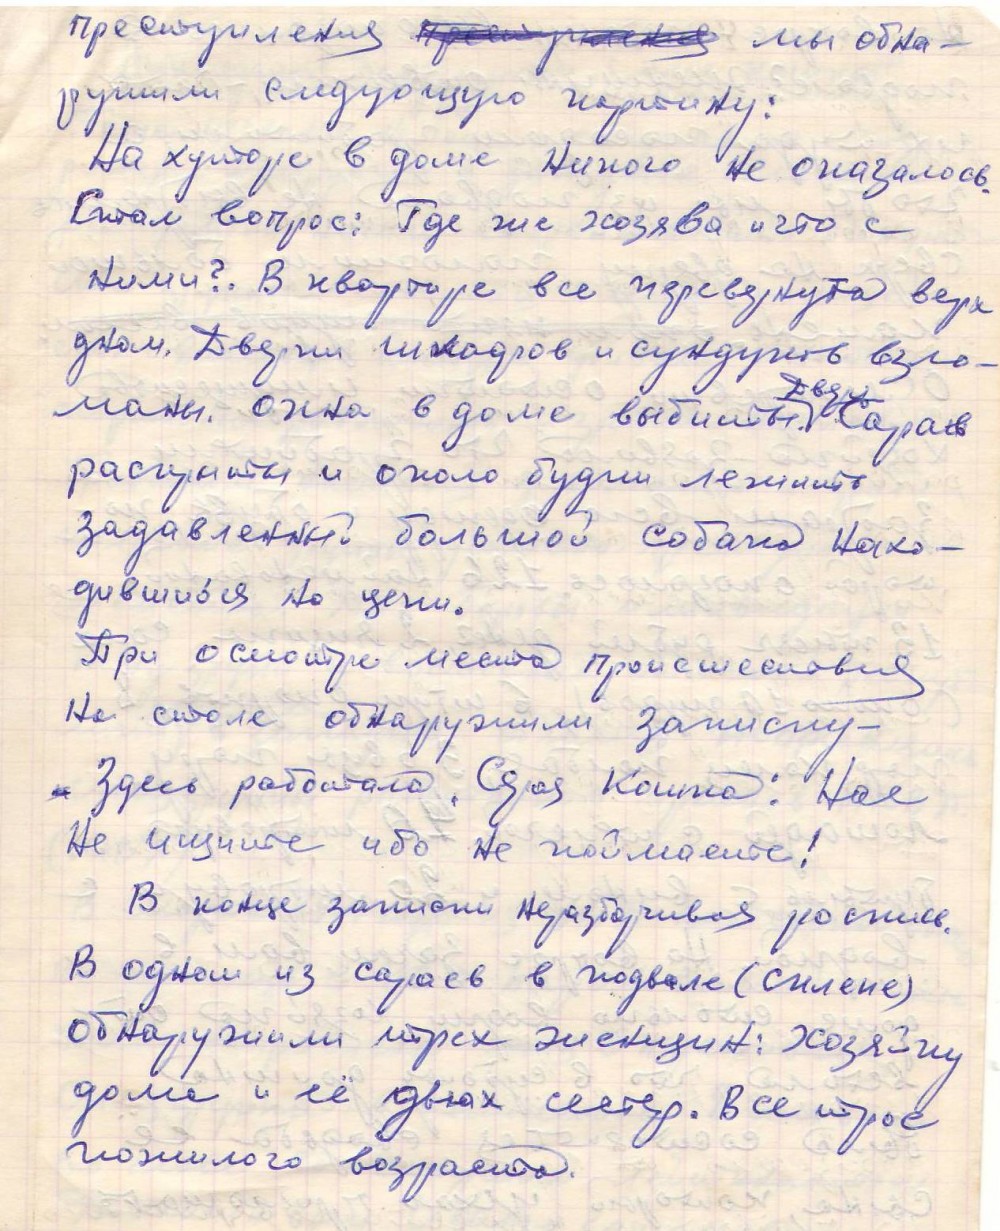 преступления преступления мы обна-
ружили следующую картину:
На хуторе в доме никого не оказалось.
Встал вопрос: Где же хозява и что с
ними?. В квартире все перевернута верх
дном. Двери шкафов и сундуков взло-
маны. Окна в доме выбиты. Двери Сараев
раскрыты и около будки лежит
задавленный большой собака нахо-
дившийся на цепи.
При осмотре места происшествия
на столе обнаружили записку-
Здесь работала. Серая Кошка: Нас
не ищите ибо не поймаете!
В конце записки неразборчивая роспись.
В одном из сараев в подвале (склепе)
обнаружили трех женщин: хозяйку
дома и её двух сестер. Все трое
пожилого возраста.